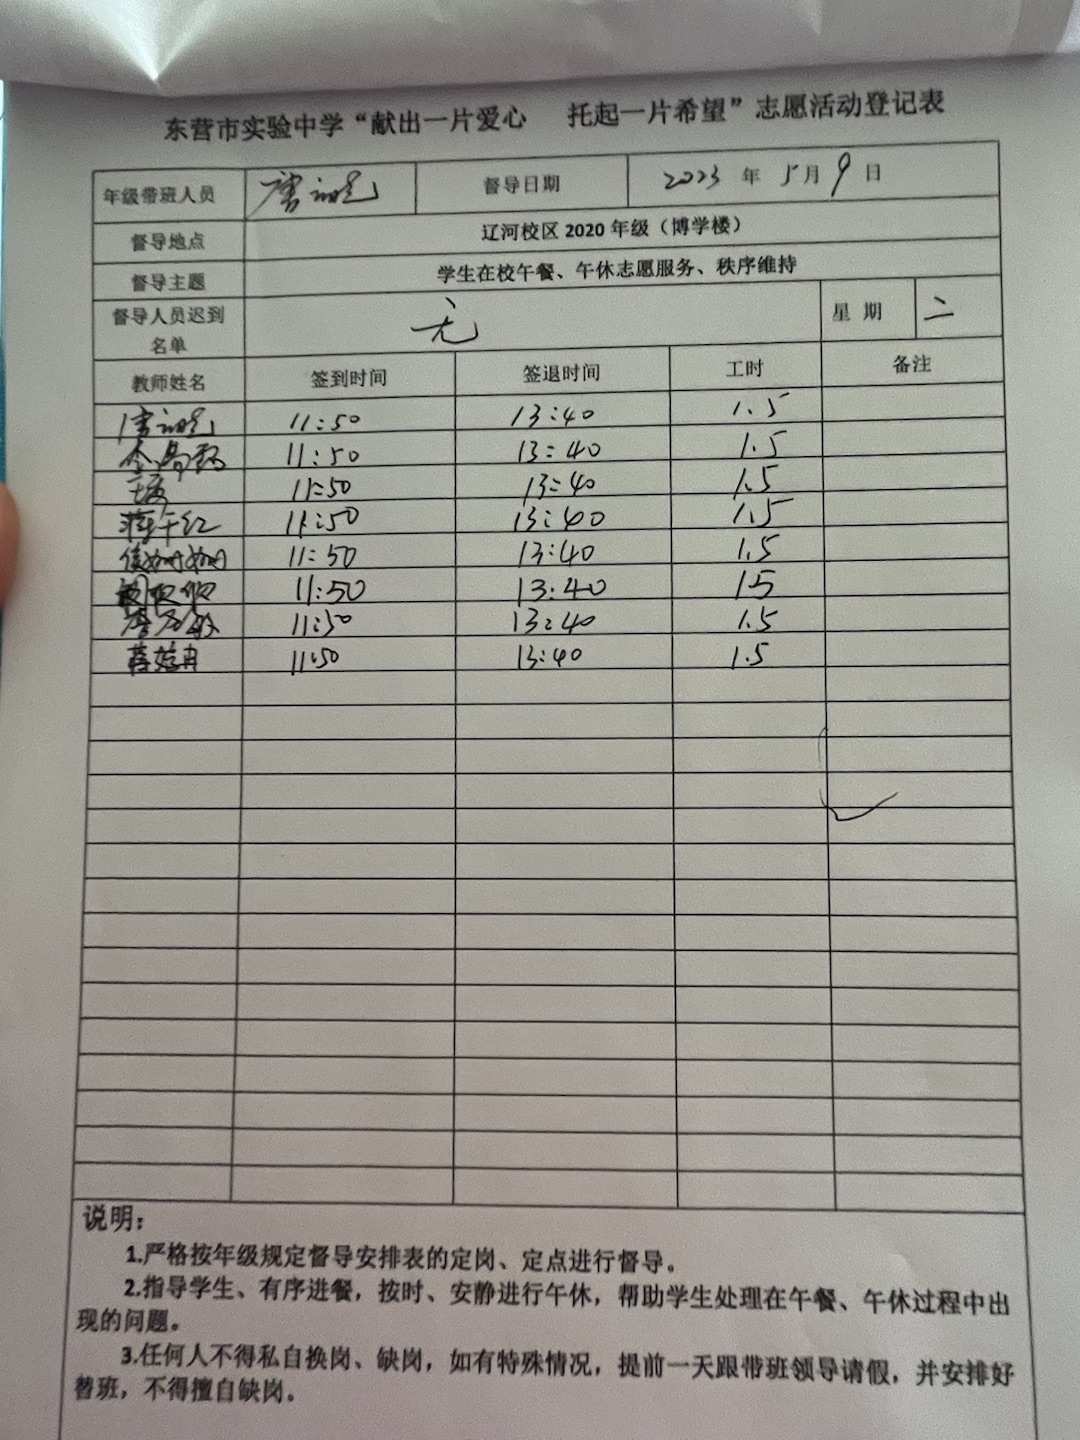 东营市实验中学“献出一片爱心 托起一片希望”志愿活动登记表
年级带班人员 督导日期 2023 年 5月 9 日
督导地点 辽河校区 2020 年级（博学楼）
督导主题 学生在校午餐、午休志愿服务、秩序维持
督导人员迟到名单 无 星 期 二
教师姓名 签到时间 签退时间 工时 备注
11:50 13:40 1.5
11:50 13:40 1.5
11:50 13:40 1.5
11:50 13:40 1.5
11:50 13:40 1.5
11:50 13:40 15
11:50 13:40 1.5
11:50 13:40 1.5
说明：
1.严格按年级规定督导安排表的定岗、定点进行督导。
2.指导学生、有序进餐，按时、安静进行午休，帮助学生处理在午餐、午休过程中出
现的问题。
3.任何人不得私自换岗、缺岗，如有特殊情况，提前一天跟带班领导请假，并安排好
替班，不得擅自缺岗。